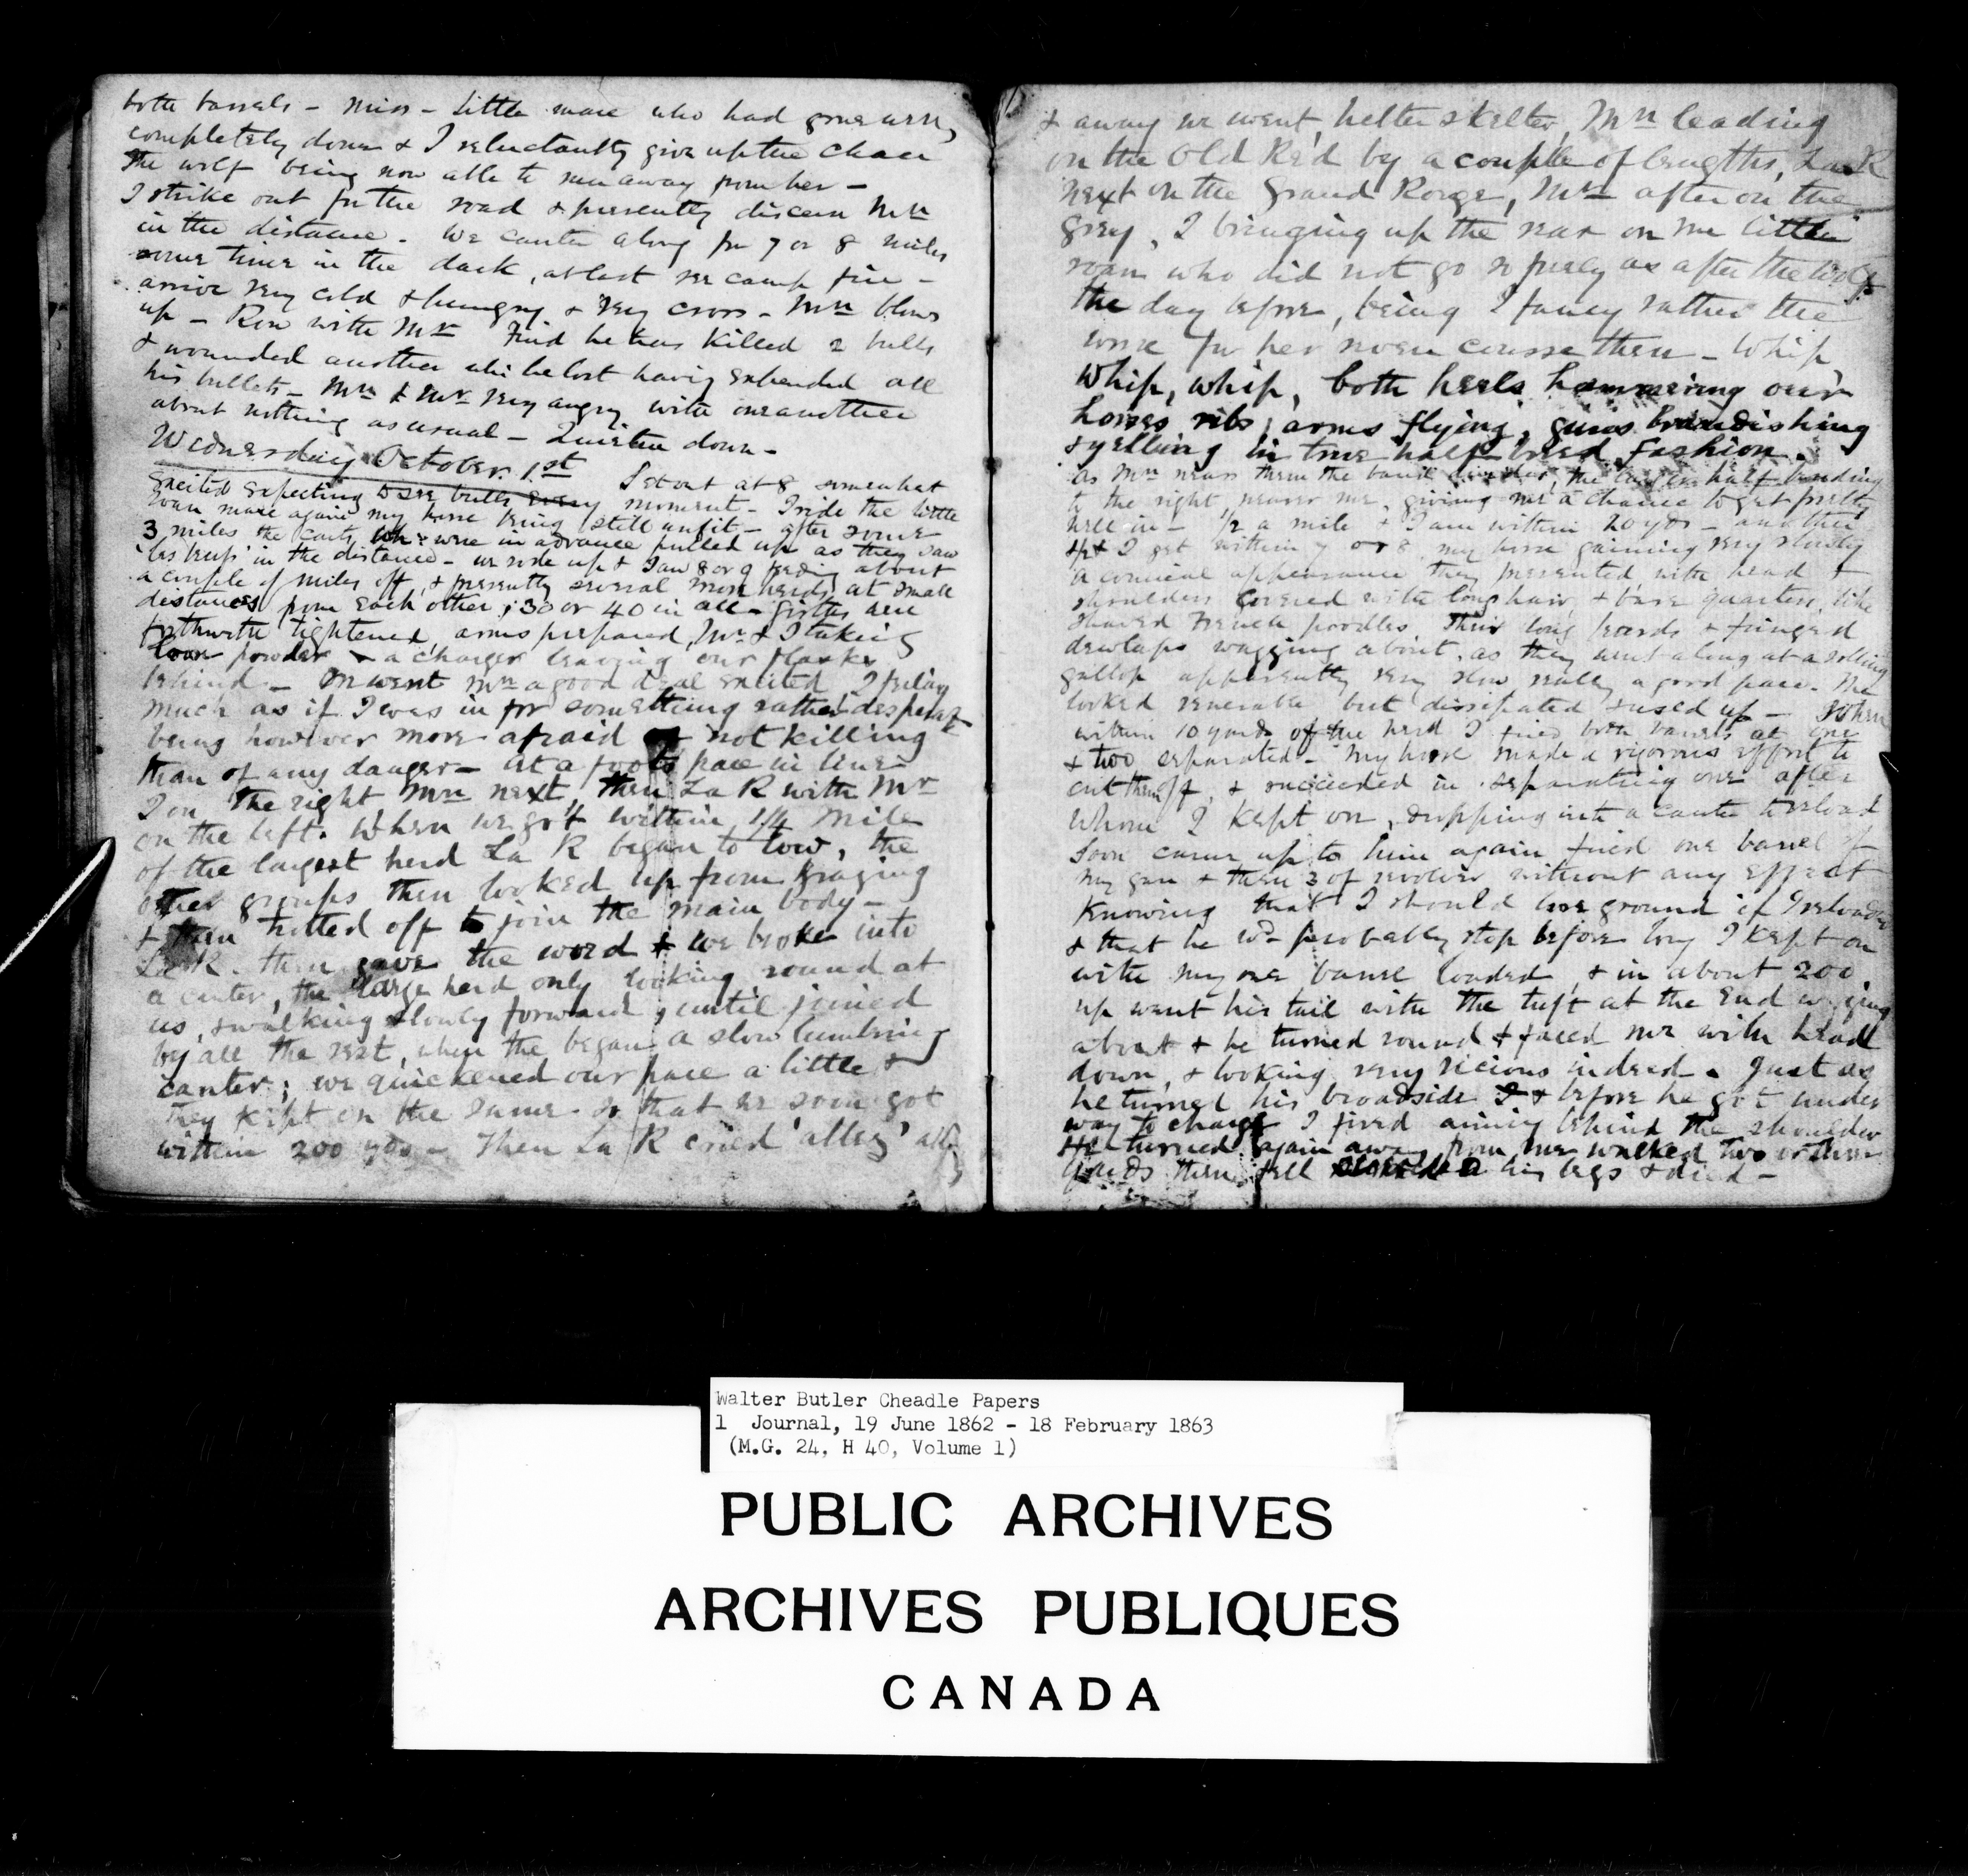 both barrels – miss – Little mare who had gone well,
completely done & I reluctantly give up the chace
the wolf being now able to run away from her –
I strike out for the road & presently discern Mn
in the distance. We canter along for 7 or 8 miles
some time in the dark, at last see camp fire –
arrive very cold & hungry, & very cross – Mn blows
up – Row with Mr Find he has killed 2 bulls
& wounded another whi he lost having expended all
his bullets – Mn & Mr very angry with one another
about nothing as usual – Quieten down –
Wednesday October 1st Set out at 8 somewhat
excited expecting to see bulls every moment – I ride the little
roan mare again my horse being still unfit – after some
3 miles the carts, wh: were in advance pulled up as they saw
in the distance – we rode up & saw 8 or 9 feeding about
a couple of miles off, & presently several more herds at small
distances from each other; 30 or 40 in all – Girths are
forthwith tightened, arms prepared, Mr & I taking
loose powder & a charger leaving our flasks
behind – On went Mn a good deal excited, I feeling
much as if I was in for something rather desperate
being however more afraid of not killing
than of any danger – at a foot's pace in line
I on the right Mn next, then La R with Mr
on the left. When we got within 1/4 mile
of the largest herd La R began to low, the
other groups then looked up from grazing
& then trotted off to join the main body –
La R. then gave the word & we broke into
a canter, the large herd only looking round at
us, & walking slowly forward, until joined
by all the rest, when the began a slow lumbring
canter; we quickened our pace a little &
they kept on the same. so that we soon got
within 200 yds – Then La R cried 'allez' allez
& away we went, helter skelter, Mn leading
on the Old Red by a couple of lengths, La R
next on the Grand Rouge, Mr after on the
Grey, I bringing up the rear on me little
roan who did not go so freely as after the wolf
the day before, being I fancy rather the
worse for her severe course then – Whip,
whip, whip, both heels hammering our
horses ribs, arms flying, guns brandishing
& yelling in true half-breed fashion.
As Mn nears them the band divides, the larger half bending
to the right, nearer me, giving me a chance to get pretty
well in – 1/2 a mile & I am within 20 yds – another
& I get within 7 or 8, my horse gaining very slowly
a comical appearance they presented, with head &
shoulders covered with long hair, & bare quarters, like
shaved French poodles. Their long beards & fringed
dewlaps wagging about, as they went along at a rolling
gallop apparently very slow really a good pace. The
looked venerable but dissipated & used up – When
within 10 yards of the herd I fired both barrels at one
& two separated – My horse made a vigorous effort to
cut them off, & succeeded in separating one after
whom I kept on, dropping into a canter to reload
Soon came up to him again fired one barrel of
my gun & then 3 of revolver without any effect
Knowing that I should lose ground if I reloaded
& that he wd probably stop before long I kept on
with my one barrel loaded, & in about 200
up went his tail with the tuft at the end wagging
about & he turned round & faced me with head
down, & looking very vicious indeed. Just as
he turned his broadside & before he got under
way to charge I fired aiming behind the shoulder
He turned again away from me walked two or three
yards then fell his legs & died –
Walter Butler Cheadle Papers
1 Journal, 19 June 1862 - 18 February 1863
(M.G. 24, H 40, Volume 1)
PUBLIC ARCHIVES
ARCHIVES PUBLIQUES
CANADA